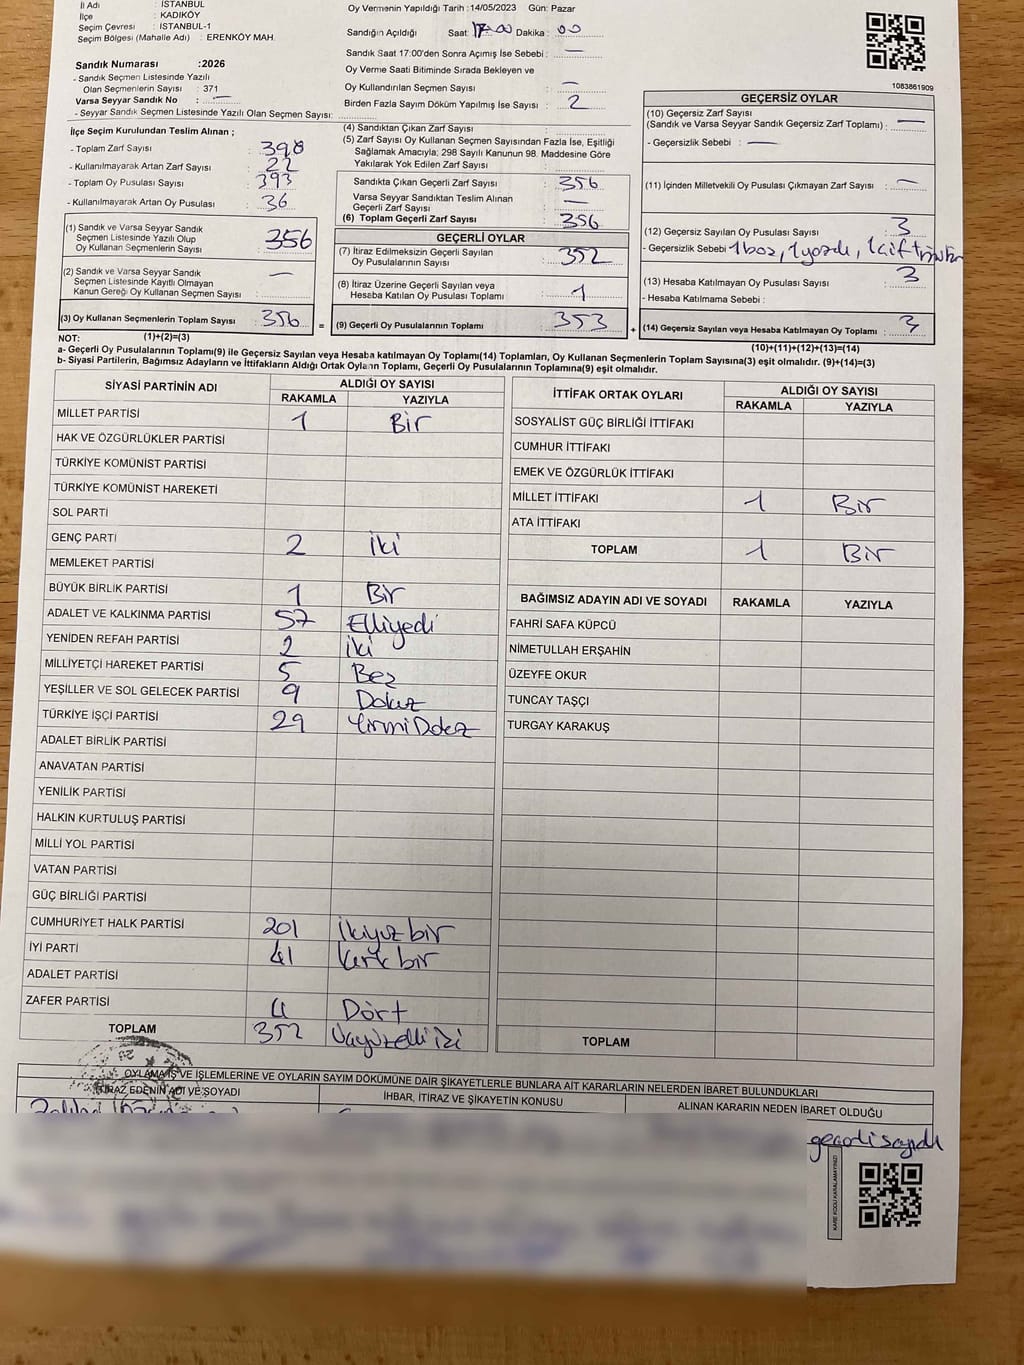 İl Adı : İSTANBUL
İlçe : KADIKÖY
Seçim Çevresi : İSTANBUL-1
Seçim Bölgesi (Mahalle Adı) : ERENKÖY MAH.
Sandık Numarası :2026
- Sandık Seçmen Listesinde Yazılı
Olan Seçmenlerin Sayısı : 371
Varsa Seyyar Sandık No : —
- Seyyar Sandık Seçmen Listesinde Yazılı Olan Seçmen Sayısı:
Oy Vermenin Yapıldığı Tarih :14/05/2023 Gün: Pazar
Sandığın Açıldığı Saat: 17.00 Dakika : 00
Sandık Saat 17:00'den Sonra Açımış İse Sebebi : —
Oy Verme Saati Bitiminde Sırada Bekleyen ve
Oy Kullandırılan Seçmen Sayısı : —
Birden Fazla Sayım Döküm Yapılmış İse Sayısı : 2
1083861909
İlçe Seçim Kurulundan Teslim Alınan ;
- Toplam Zarf Sayısı : 398
- Kullanılmayarak Artan Zarf Sayısı : 22
- Toplam Oy Pusulası Sayısı : 393
- Kullanılmayarak Artan Oy Pusulası : 36
(1) Sandık ve Varsa Seyyar Sandık
Seçmen Listesinde Yazılı Olup
Oy Kullanan Seçmenlerin Sayısı : 356
(2) Sandık ve Varsa Seyyar Sandık
Seçmen Listesinde Kayıtlı Olmayan
Kanun Gereği Oy Kullanan Seçmen Sayısı : —
(3) Oy Kullanan Seçmenlerin Toplam Sayısı : 356
(4) Sandıktan Çıkan Zarf Sayısı :
(5) Zarf Sayısı Oy Kullanan Seçmen Sayısından Fazla İse, Eşitliği
Sağlamak Amacıyla; 298 Sayılı Kanunun 98. Maddesine Göre
Yakılarak Yok Edilen Zarf Sayısı :
Sandıkta Çıkan Geçerli Zarf Sayısı : 356
Varsa Seyyar Sandıktan Teslim Alınan
Geçerli Zarf Sayısı : —
(6) Toplam Geçerli Zarf Sayısı : 356
GEÇERLİ OYLAR
(7) İtiraz Edilmeksizin Geçerli Sayılan
Oy Pusulalarının Sayısı : 352
(8) İtiraz Üzerine Geçerli Sayılan veya
Hesaba Katılan Oy Pusulası Toplamı : 1
= (9) Geçerli Oy Pusulalarının Toplamı : 353
GEÇERSİZ OYLAR
(10) Geçersiz Zarf Sayısı
(Sandık ve Varsa Seyyar Sandık Geçersiz Zarf Toplamı) : —
- Geçersizlik Sebebi : —
(11) İçinden Milletvekili Oy Pusulası Çıkmayan Zarf Sayısı : —
(12) Geçersiz Sayılan Oy Pusulası Sayısı : 3
- Geçersizlik Sebebi : 1 boş, 1 yazılı, 1 çift
(13) Hesaba Katılmayan Oy Pusulası Sayısı : 3
- Hesaba Katılmama Sebebi :
+ (14) Geçersiz Sayılan veya Hesaba Katılmayan Oy Toplamı : 3
NOT: (1)+(2)=(3) (10)+(11)+(12)+(13)=(14)
a- Geçerli Oy Pusulalarının Toplamı(9) ile Geçersiz Sayılan veya Hesaba katılmayan Oy Toplamı(14) Toplamları, Oy Kullanan Seçmenlerin Toplam Sayısına(3) eşit olmalıdır. (9)+(14)=(3)
b- Siyasi Partilerin, Bağımsız Adayların ve İttifakların Aldığı Ortak Oyların Toplamı, Geçerli Oy Pusulalarının Toplamına(9) eşit olmalıdır.
SİYASİ PARTİNİN ADI ALDIĞI OY SAYISI
RAKAMLA YAZIYLA
MİLLET PARTİSİ 1 Bir
HAK VE ÖZGÜRLÜKLER PARTİSİ
TÜRKİYE KOMÜNİST PARTİSİ
TÜRKİYE KOMÜNİST HAREKETİ
SOL PARTİ
GENÇ PARTİ 2 iki
MEMLEKET PARTİSİ
BÜYÜK BİRLİK PARTİSİ 1 Bir
ADALET VE KALKINMA PARTİSİ 57 Elliyedi
YENİDEN REFAH PARTİSİ 2 iki
MİLLİYETÇİ HAREKET PARTİSİ 5 Beş
YEŞİLLER VE SOL GELECEK PARTİSİ 9 Dokuz
TÜRKİYE İŞÇİ PARTİSİ 29 YirmiDokuz
ADALET BİRLİK PARTİSİ
ANAVATAN PARTİSİ
YENİLİK PARTİSİ
HALKIN KURTULUŞ PARTİSİ
MİLLİ YOL PARTİSİ
VATAN PARTİSİ
GÜÇ BİRLİĞİ PARTİSİ
CUMHURİYET HALK PARTİSİ 201 ikiyüz bir
İYİ PARTİ 41 kırk bir
ADALET PARTİSİ
ZAFER PARTİSİ 4 Dört
TOPLAM 352 Üçyüzelli iki
İTTİFAK ORTAK OYLARI ALDIĞI OY SAYISI
RAKAMLA YAZIYLA
SOSYALİST GÜÇ BİRLİĞİ İTTİFAKI
CUMHUR İTTİFAKI
EMEK VE ÖZGÜRLÜK İTTİFAKI
MİLLET İTTİFAKI 1 Bir
ATA İTTİFAKI
TOPLAM 1 Bir
BAĞIMSIZ ADAYIN ADI VE SOYADI RAKAMLA YAZIYLA
FAHRİ SAFA KÜPCÜ
NİMETULLAH ERŞAHİN
ÜZEYFE OKUR
TUNCAY TAŞÇI
TURGAY KARAKUŞ
TOPLAM
OYLAMA İŞ VE İŞLEMLERİNE VE OYLARIN SAYIM DÖKÜMÜNE DAİR ŞİKAYETLERLE BUNLARA AİT KARARLARIN NELERDEN İBARET BULUNDUKLARI
İTİRAZ EDENİN ADI VE SOYADI İHBAR, İTİRAZ VE ŞİKAYETİN KONUSU ALINAN KARARIN NEDEN İBARET OLDUĞU
geçerli sayıldı
KARE KODU KARALAMAYINIZ!